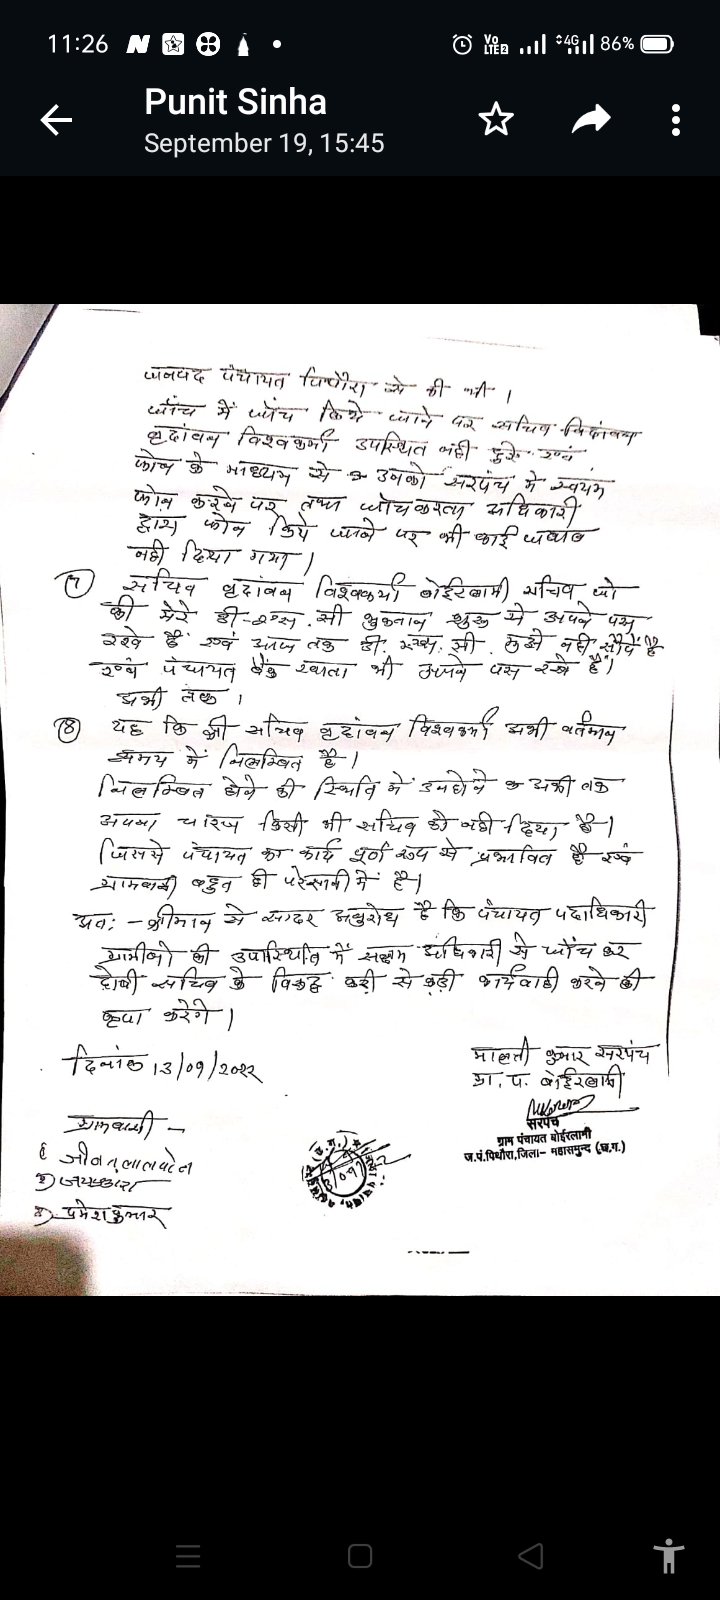 11:26
Vo LTE2 4G 86%
Punit Sinha
September 19, 15:45
जनपद पंचायत पिथौरा से की थी ।
जाँच में जाँच किये जाने पर सचिव
बृदांवन विश्वकर्मा उपस्थित नही हुऐ एवं
फोन के माध्यम से उनको सरपंच ने स्वयंम
फोन करने पर तथा जाँचकरता अधिकारी
द्वारा फोन किये जाने पर भी कोई जवाब
नही दिया गया ।
(7) सचिव बृदांवन विश्वकर्मा बोईरलामी सचिव जो
की मेरे डी-एस.सी शुरु से अपने पास
रखे है एवं आज तक डी.एस.सी. मुझे नही सौपे है
एवं पंचायत बैंक खाता भी अपने पास रखे है।
अभी तक ।
(8) यह कि श्री सचिव बृदांवन विश्वकर्मा अभी वर्तमान
समय में निलम्बित है ।
निलम्बित होने की स्थिति में उनहोने अभी तक
अपना चारज किसी भी सचिव को नही दिया है।
जिससे पंचायत का कार्य पूर्ण रूप से प्रभावित है एवं
ग्रामवासी बहुत ही परेसानी में है।
अतः - श्रीमान से सादर अनुरोध है कि पंचायत पदाधिकारी
ग्रामीणो की उपास्थिति में सक्षम अधिकारी से जाँच कर
दोषी सचिव के विरूद्ध कड़ी से कड़ी कार्यवाही करने की
कृपा करेगे ।
दिनांक 13/09/2022
मालती कुमार सरपंच
ग्रा. प. बोईरलामी
सरपंच
ग्राम पंचायत बोईरलामी
ज.पं.पिथौरा,जिला- महासमुन्द (छ.ग.)
ग्रामवासी -
जयप्रकाश
प्रमेश कुमार